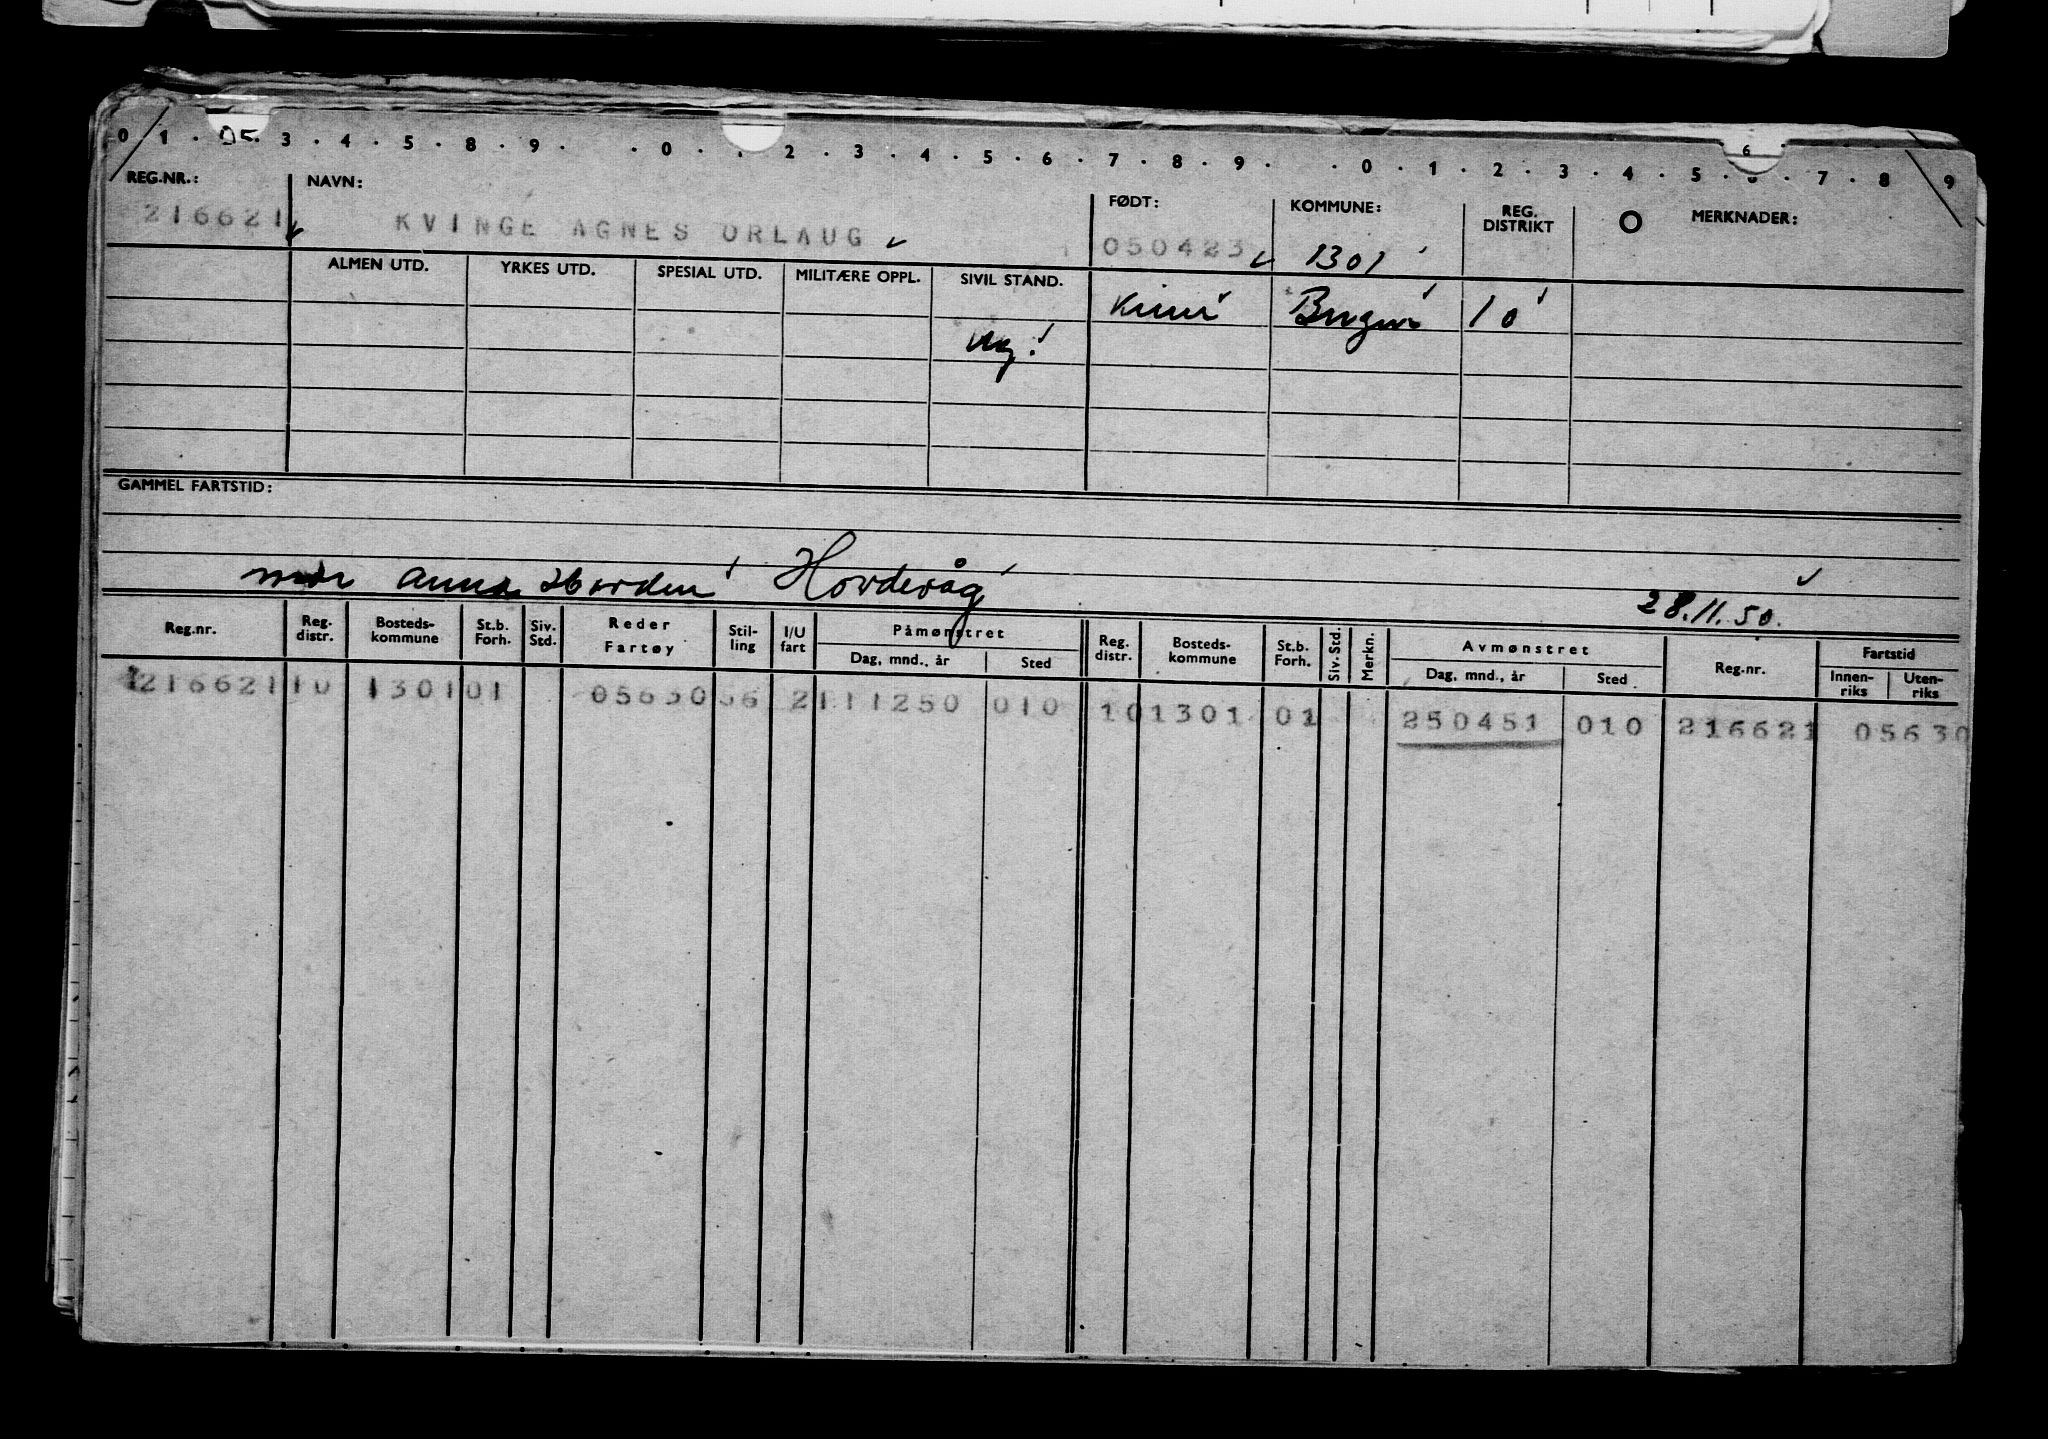 0 1 05 3 4 5 8 9 0 2 3 4 5 6 7 8 9 0 1 2 3 4 5 6 7 8 9
REG.NR.: NAVN: FØDT: KOMMUNE: REG. DISTRIKT MERKNADER:
216621 KVINGE AGNES ORLAUG 050423 1301
ALMEN UTD. YRKES UTD. SPESIAL UTD. MILITÆRE OPPL. SIVIL STAND.
Bergen 10
ug.
GAMMEL FARTSTID:
mor Anna Harden Hordevåg 28.11.50.
Reg.nr. Reg. distr. Bosteds- kommune St.b. Forh. Siv. Std. Reder Fartøy Stil- ling I/U fart Påmønstret Dag, mnd., år Sted Reg. distr. Bosteds- kommune St.b. Forh. Siv. Std. Merkn. Avmønstret Dag, mnd., år Sted Reg.nr. Fartstid Innen- riks Uten- riks
216621 10 1301 01 05630 56 2 111250 010 10 1301 01 250451 010 216621 05630